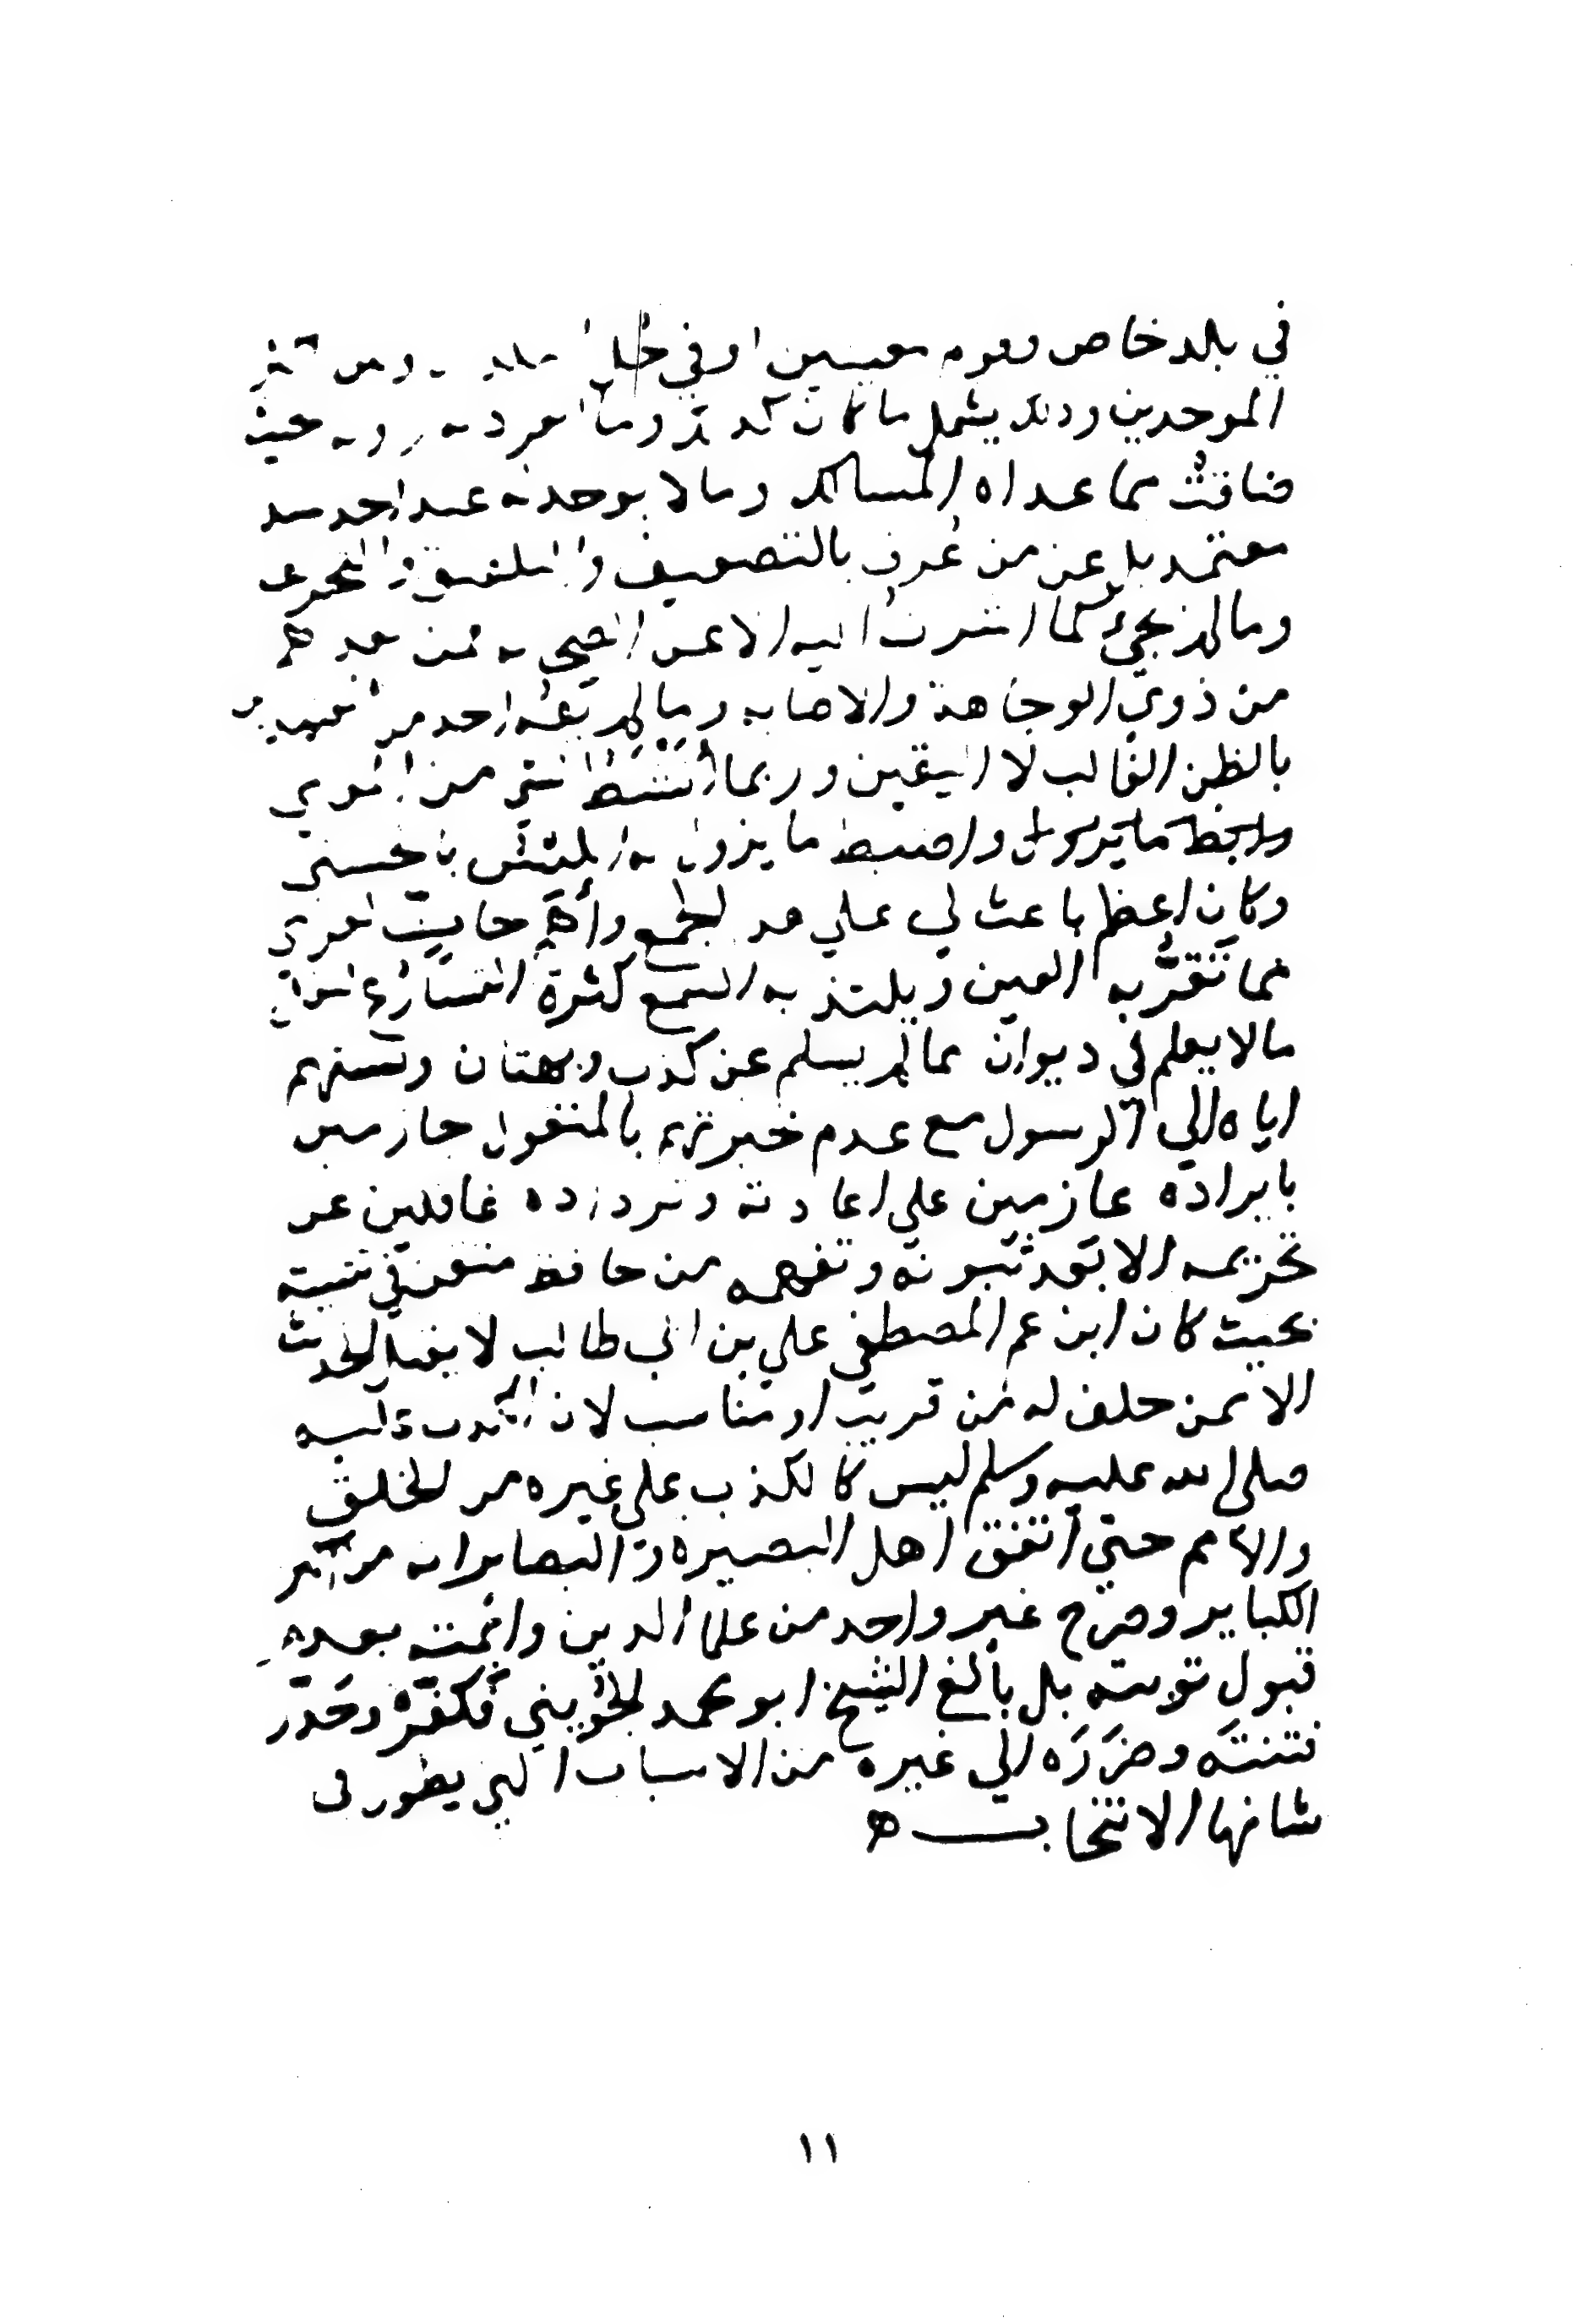 في بلد خاص وقوم معينين او في جل
الموحدين وذلك يشمل ما كان كذلك وما انفرد به راويه حيث
ضاقت مما عداه المسالك وما لا يوجد له عند احد سند
معتمد بل عن من عرف بالتصحيف والتلفيق والتحريف
وما لم يجيء كما اشرت اليه الا عن الصحابة فمن بعدهم
من ذوي الوجاهة والاصابه وما لم يفه احد من
بالظن الغالب لا اليقين وربما انشط لشيء من المروي
ما واضبط ما يزول به الملتبس باحسن
وكان اعظم باعث لي على هذا الجمع وأهم حاث
مما تقر به العين ويلتذ به السمع كثرة التسارع لنقل
مالا يعلم في ديوان مما لم يسلم عن كذب وبهتان ونسبتهم
اياه الي الرسول مع عدم خبرتهم بالمنقول جازمين
بايراده عازمين علي اعادته وترداده غافلين عن
تحريمه الا بعد ثبوته وتفهمه من حافظ متقن في تثبته
بحيث كان ابن عم المصطفي علي بن ابي طالب لا يقبل الحديث
الا ممن حلف له من قريب او مناسب لان الكذب عليه
صلى الله عليه وسلم ليس كالكذب على غيره من الخلق
والامم حتي اتفق اهل البصيرة والبصائر انه من اكبر
الكباير وصرح غير واحد من علما الدين وائمته بعدم
قبول توبته بل بالغ الشيخ ابو محمد الجويني فكفره وحذر
فتنته وضرره الي غيره من الاسباب التي يطول في
شانها الانتخاب ه
١١